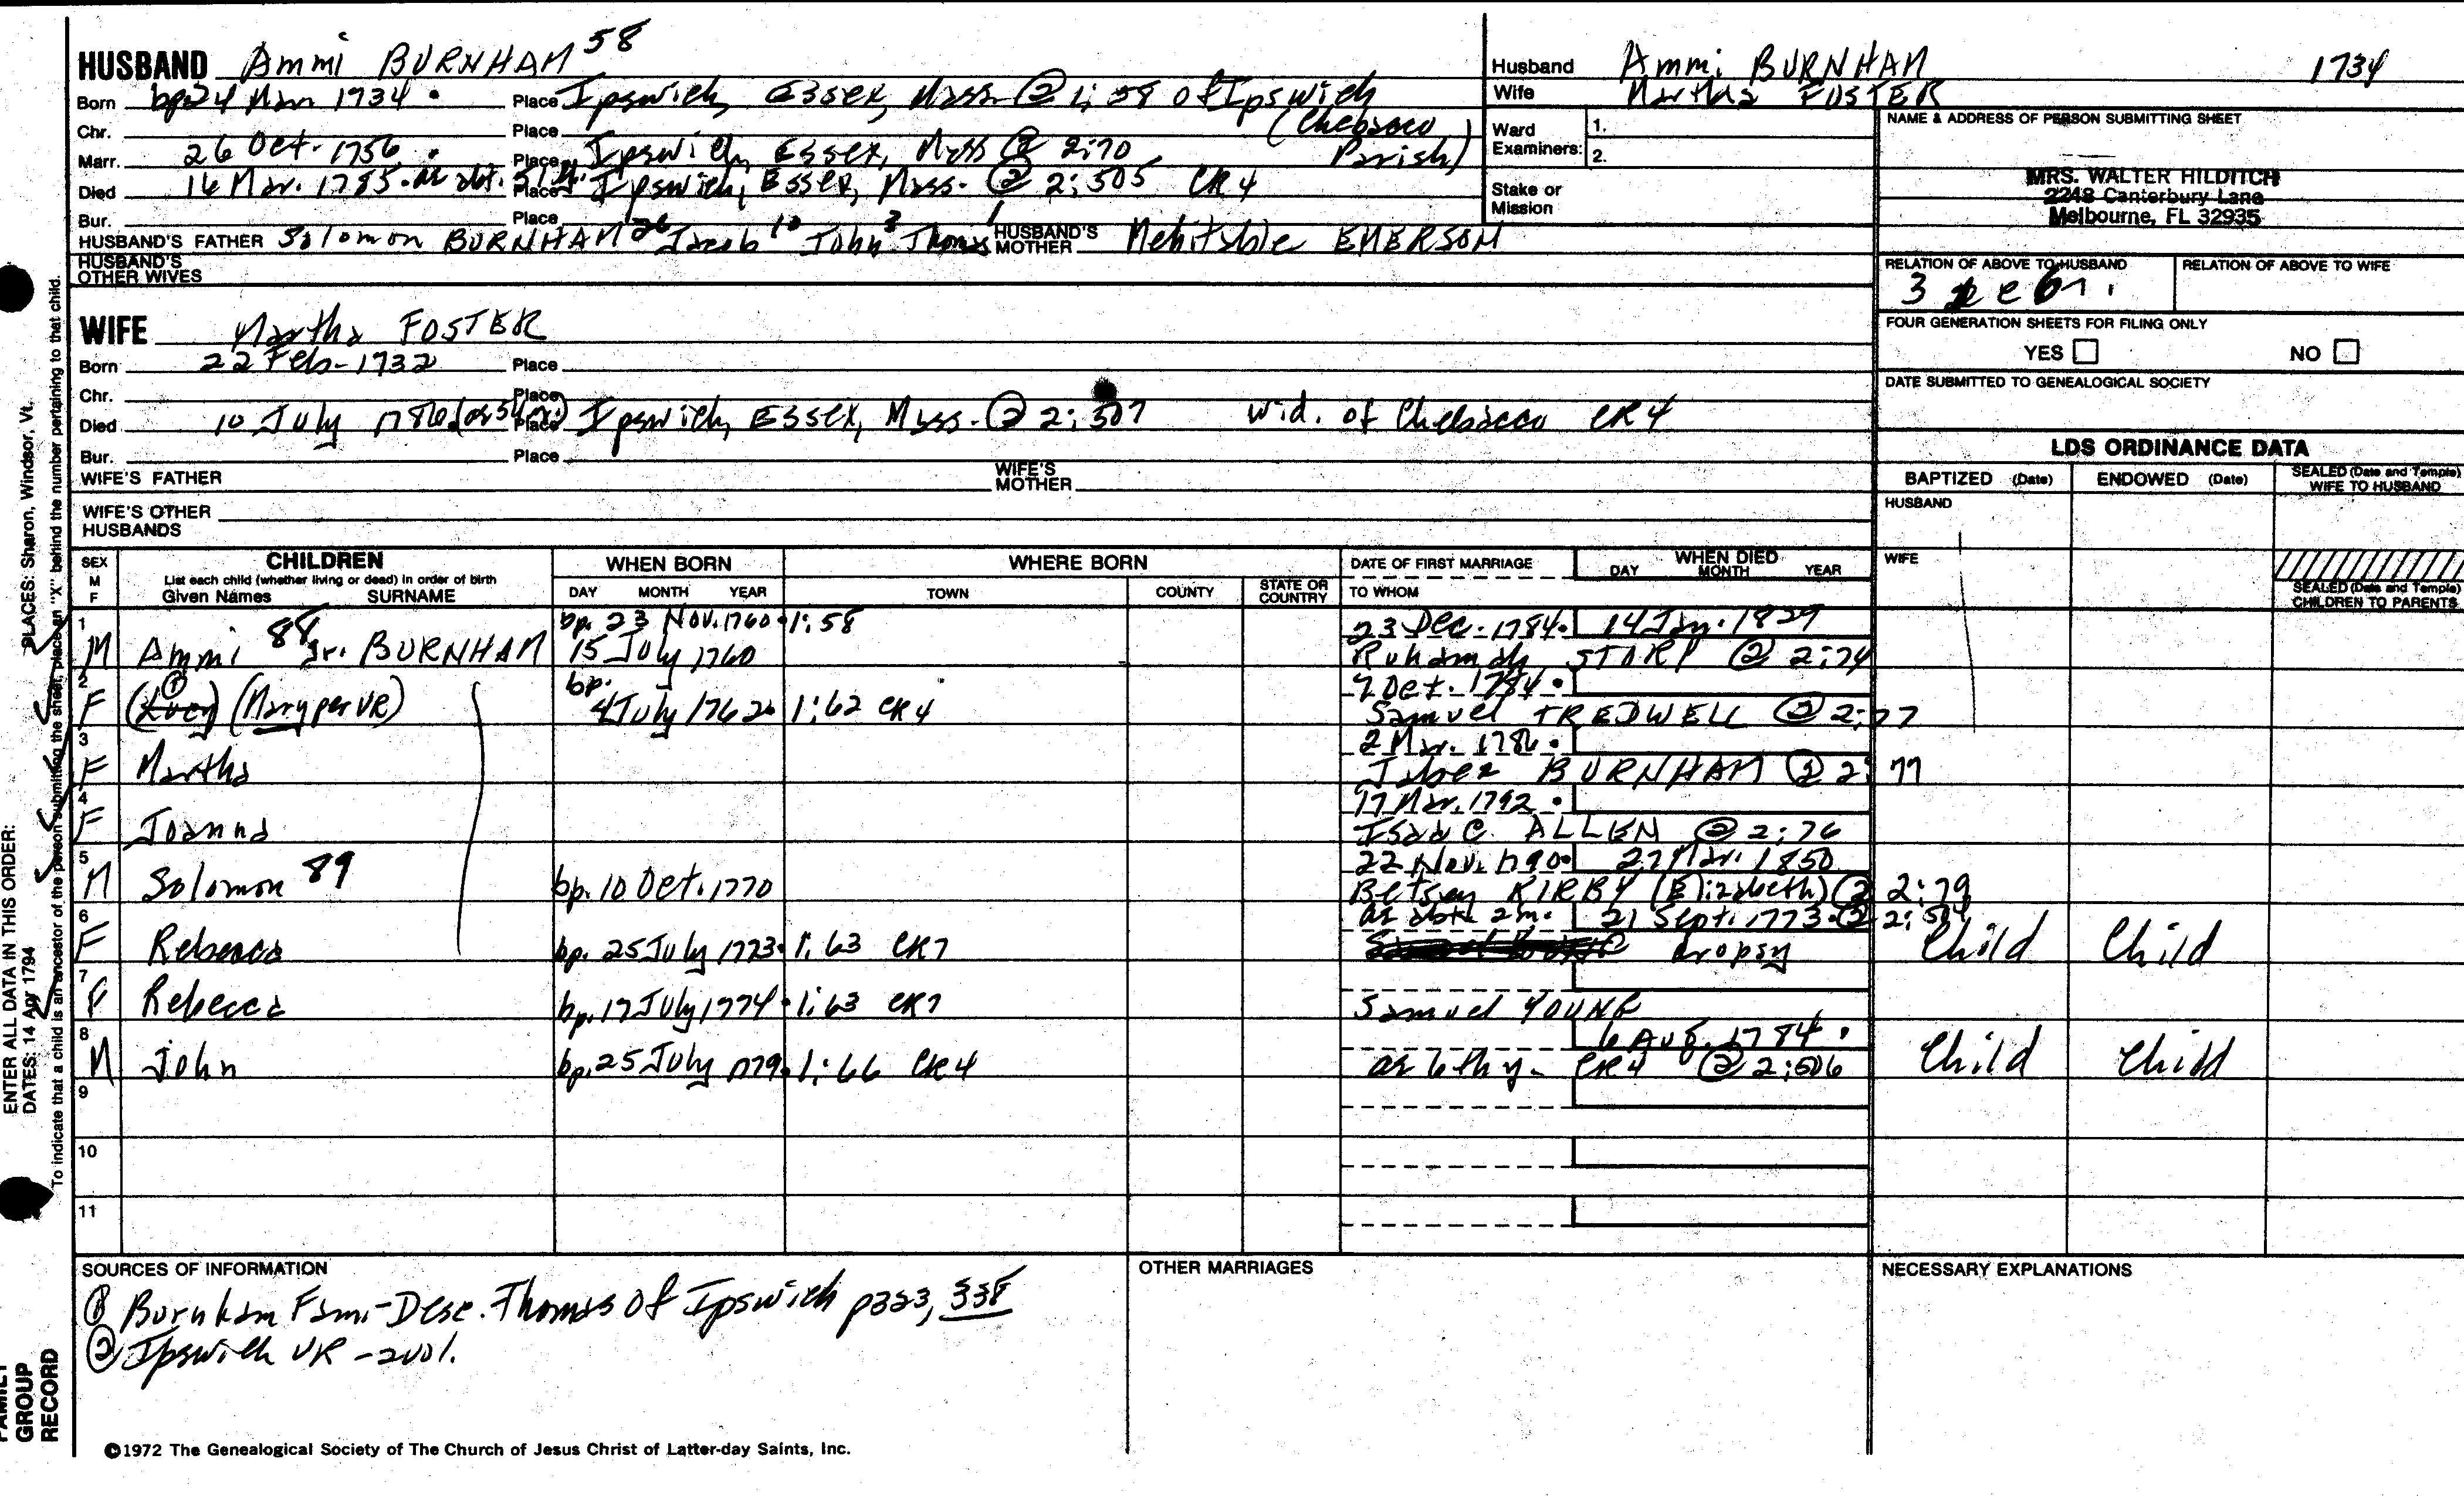 HUSBAND Ammi BURNHAM 58
Born bp. 24 Mar 1734 • Place Ipswich, Essex, Mass. @ 1:58 of Ipswich
Chr. Place (Chebacco
Marr. 26 Oct. 1756 • Place Ipswich, Essex, Mass @ 2:70 Parish)
Died 16 Mar. 1785. ae abt. 51 y. Place Ipswich, Essex, Mass. @ 2:505 CR4
Bur. Place
HUSBAND'S FATHER Solomon BURNHAM 26 Jacob 10 John 3 Thomas 1 HUSBAND'S MOTHER Mehitable EMERSON
HUSBAND'S OTHER WIVES
WIFE Martha FOSTER
Born 22 Feb- 1732 Place
Chr. Place
Died 10 July 1786 (ae 54 y.) Place Ipswich, Essex, Mass. @ 2:507 wid. of Chebacco CR4
Bur. Place
WIFE'S FATHER WIFE'S MOTHER
WIFE'S OTHER HUSBANDS
Husband Ammi BURNHAM 1734
Wife Martha FOSTER
Ward Examiners: 1.
2.
Stake or Mission
NAME & ADDRESS OF PERSON SUBMITTING SHEET
MRS. WALTER HILDITCH
2248 Canterbury Lane
Melbourne, FL 32935
RELATION OF ABOVE TO HUSBAND RELATION OF ABOVE TO WIFE
3
FOUR GENERATION SHEETS FOR FILING ONLY
YES NO
DATE SUBMITTED TO GENEALOGICAL SOCIETY
LDS ORDINANCE DATA
BAPTIZED (Date) ENDOWED (Date) SEALED (Date and Temple) WIFE TO HUSBAND
HUSBAND
WIFE
SEALED (Date and Temple) CHILDREN TO PARENTS
SEX M F CHILDREN WHEN BORN WHERE BORN DATE OF FIRST MARRIAGE WHEN DIED
List each child (whether living or dead) in order of birth
Given Names SURNAME DAY MONTH YEAR TOWN COUNTY STATE OR COUNTRY TO WHOM DAY MONTH YEAR
1 bp. 23 Nov. 1760 • 1:58 23 Dec. 1784 • 14 Jan. 1829
M Ammi 88 Jr. BURNHAM 15 July 1760 Ruhamah STORP @ 2:74
2 bp. 7 Oct. 1784 •
F (Lucy) ① (Mary per VR) 4 July 1762 • 1:62 CR4 Samuel TREDWELL @ 2:77
3 2 Mar. 1786 •
F Martha Jabez BURNHAM @ 2:77
4 17 Mar. 1792 •
F Joanna Isaac ALLEN @ 2:76
5 22 Nov. 1790 • 27 Mar. 1850
M Solomon 89 bp. 10 Oct. 1770 Betsey KIRBY (Elizabeth) @ 2:79
6 ae abt 2 m. 21 Sept. 1773 • @ 2:504
F Rebecca bp. 25 July 1773 • 1:63 CR7 Dropsy Child Child
7
F Rebecca bp. 17 July 1774 • 1:63 CR7 Samuel YOUNG
8 6 Aug. 1784 •
M John bp. 25 July 1779 • 1:66 CR4 ae 6th y. CR4 @ 2:506 Child Child
9
10
11
SOURCES OF INFORMATION
① Burnham Fam.-Desc. Thomas of Ipswich p323, 338
② Ipswich VR - 2 vol.
OTHER MARRIAGES
NECESSARY EXPLANATIONS
©1972 The Genealogical Society of The Church of Jesus Christ of Latter-day Saints, Inc.
ENTER ALL DATA IN THIS ORDER:
DATES: 14 Apr 1794 PLACES: Sharon, Windsor, Vt.
To indicate that a child is an ancestor of the person submitting the sheet, place an "X" behind the number pertaining to that child.
FAMILY
GROUP
RECORD